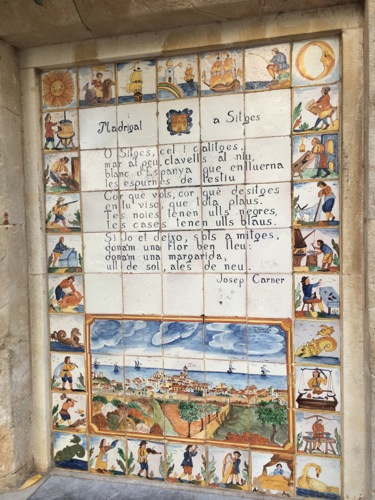 Madrigal a Sitges
O Sitges, cel i calitges,
mar al peu, clavells al niu,
blanc d'Espanya que enlluerna
les espurnes de l'estiu.
Cor què vols, cor què desitges
en tu visc, que tota plaus.
Tes noies tenen ulls negres,
tes cases tenen ulls blaus.
Si jo et deixo, sols a mitges,
dona'm una flor ben lleu:
dona'm una margarida,
ull de sol, ales de neu.
Josep Carner